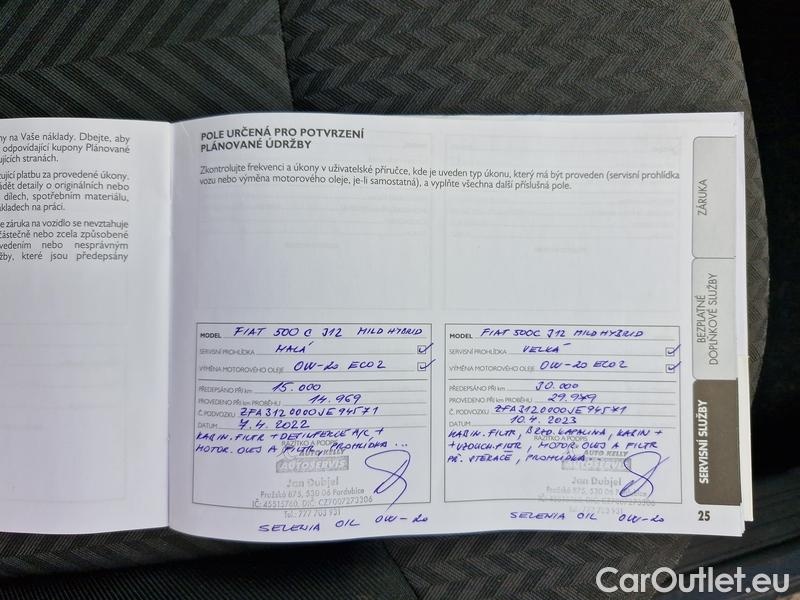 ny na Vaše náklady. Dbejte, aby
odpovídající kupony Plánované
ujících stranách.
tující platbu za provedené úkony.
ádět detaily o originálních nebo
dílech, spotřebním materiálu,
ákladech na práci.
e záruka na vozidlo se nevztahuje
částečně nebo zcela způsobené
ovedením nebo nesprávným
žby, které jsou předepsány
POLE URČENÁ PRO POTVRZENÍ
PLÁNOVANÉ ÚDRŽBY
Zkontrolujte frekvenci a úkony v uživatelské příručce, kde je uveden typ úkonu, který má být proveden (servisní prohlídka
vozu nebo výměna motorového oleje, je-li samostatná), a vyplňte všechna další příslušná pole.
MODEL FIAT 500 C 312 MILD HYBRID
SERVISNÍ PROHLÍDKA MALÁ
VÝMĚNA MOTOROVÉHO OLEJE 0W-20 ECO2
PŘEDEPSÁNO PŘI km 15.000
PROVEDENO PŘI km PROBĚHU 14.969
Č. PODVOZKU ZFA3120000JE94571
DATUM 7.4.2022
KABIN. FILTR + DETILFEKCE A/C +
MOTOR. OLEJ A FILTR, PROHLÍDKA...
RAZÍTKO A PODPIS
AUTO KELLY
AUTOSERVIS
Jan Dubjel
Pražská 875, 530 06 Pardubice
IČ: 45515760, DIČ: CZ7007273206
Tel.: 777 703 931
SELENIA OIL 0W-20
MODEL FIAT 500C 312 MILD HYBRID
SERVISNÍ PROHLÍDKA VELKÁ
VÝMĚNA MOTOROVÉHO OLEJE 0W-20 ECO2
PŘEDEPSÁNO PŘI km 30.000
PROVEDENO PŘI km PROBĚHU 29.979
Č. PODVOZKU ZFA3120000JE94571
DATUM 10.4.2023
KABIN. FILTR, BRZD. KAPALINA, KABIN +
+ VZDUCH. FILTR, MOTOR. OLEJ A FILTR
PŘ. STĚRAČE, PROHLÍDKA...
RAZÍTKO A PODPIS
AUTO KELLY
AUTOSERVIS
Jan Dubjel
Pražská 875, 530 06 Pardubice
Tel.: 777 703 931
SELENIA OIL 0W-20
ZÁRUKA
BEZPLATNÉ
DOPLŇKOVÉ SLUŽBY
SERVISNÍ SLUŽBY
25
CarOutlet.eu